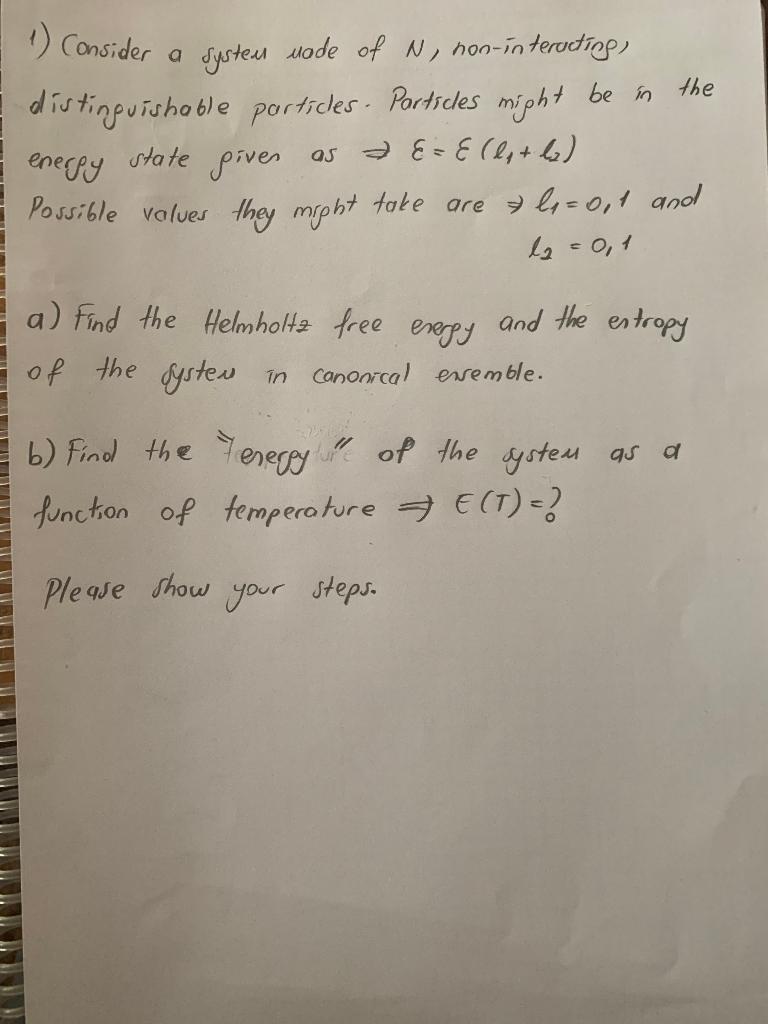 1) Consider a system made of N, non-interacting,
distinguishable particles. Particles might be in the
energy state given as ⇒ Ɛ = Ɛ (l₁ + l₂)
Possible values they might take are ⇒ l₁ = 0,1 and
l₂ = 0,1
a) Find the Helmholtz free energy and the entropy
of the system in canonical ensemble.
b) Find the "energy" of the system as a
function of temperature ⇒ E(T) = ?
Please show your steps.